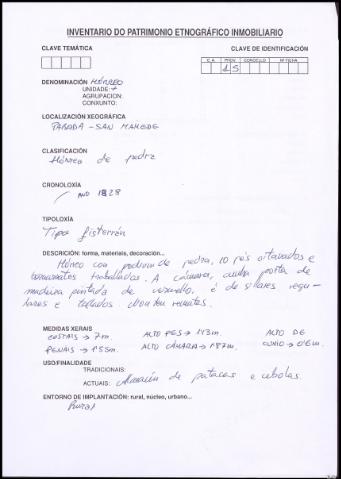 INVENTARIO DO PATRIMONIO ETNOGRÁFICO INMOBILIARIO
CLAVE TEMÁTICA
CLAVE DE IDENTIFICACIÓN
C.A. PROV. CONCELLO Nº FICHA
15
DENOMINACIÓN HÓRREO
UNIDADE: +
AGRUPACION:
CONXUNTO:
LOCALIZACIÓN XEOGRÁFICA
PARADA - SAN MAMEDE
CLASIFICACIÓN
Hórreo de pedra
CRONOLOXÍA
ANO 1828
TIPOLOXÍA
Tipo fisterrán
DESCRICIÓN: forma, materiais, decoración...
Hórreo con de pedra, 10 pés oitavados e
tornarratos traballados. A cámara, cunha porta de
madeira pintada de vermello, é de sillares regu-
lares e tellado
MEDIDAS XERAIS
COSTAIS → 7m.
ALTO PES → 1'13m.
ALTO DE
PENAIS → 1'55m.
ALTO CÁMARA → 1'87m.
CUMIO → 0'6m.
USO/FINALIDADE
TRADICIONAIS:
ACTUAIS: Almacén de patacas e cebolas.
ENTORNO DE IMPLANTACIÓN: rural, núcleo, urbano...
Rural